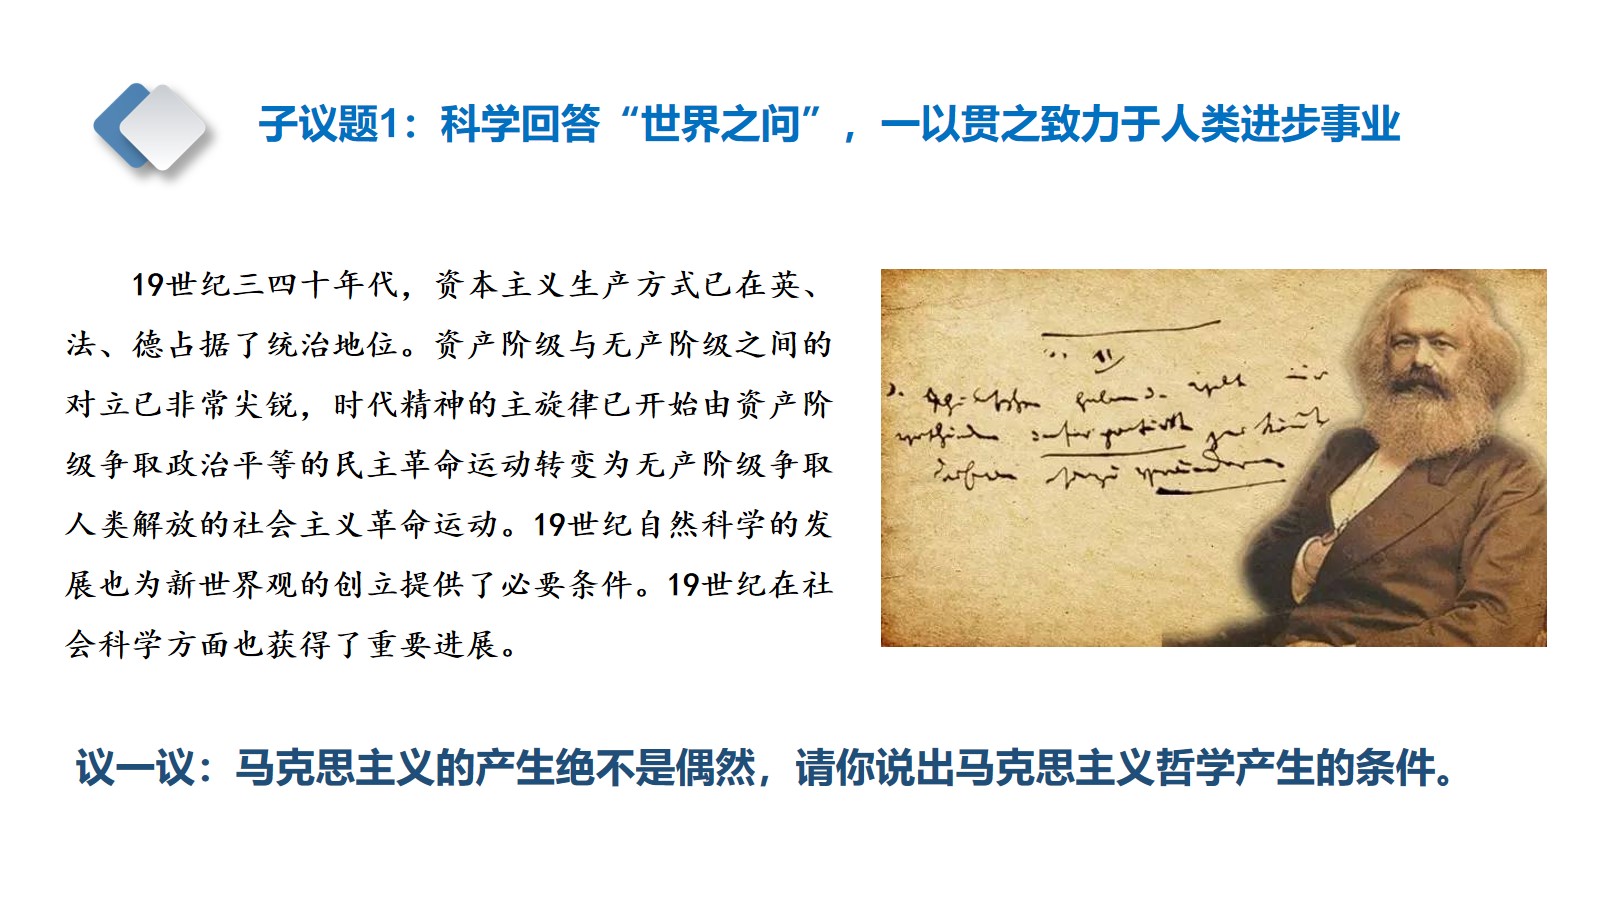 子议题1：科学回答“世界之问”，一以贯之致力于人类进步事业
19世纪三四十年代，资本主义生产方式已在英、
法、德占据了统治地位。资产阶级与无产阶级之间的
对立已非常尖锐，时代精神的主旋律已开始由资产阶
级争取政治平等的民主革命运动转变为无产阶级争取
人类解放的社会主义革命运动。19世纪自然科学的发
展也为新世界观的创立提供了必要条件。19世纪在社
会科学方面也获得了重要进展。
议一议：马克思主义的产生绝不是偶然，请你说出马克思主义哲学产生的条件。